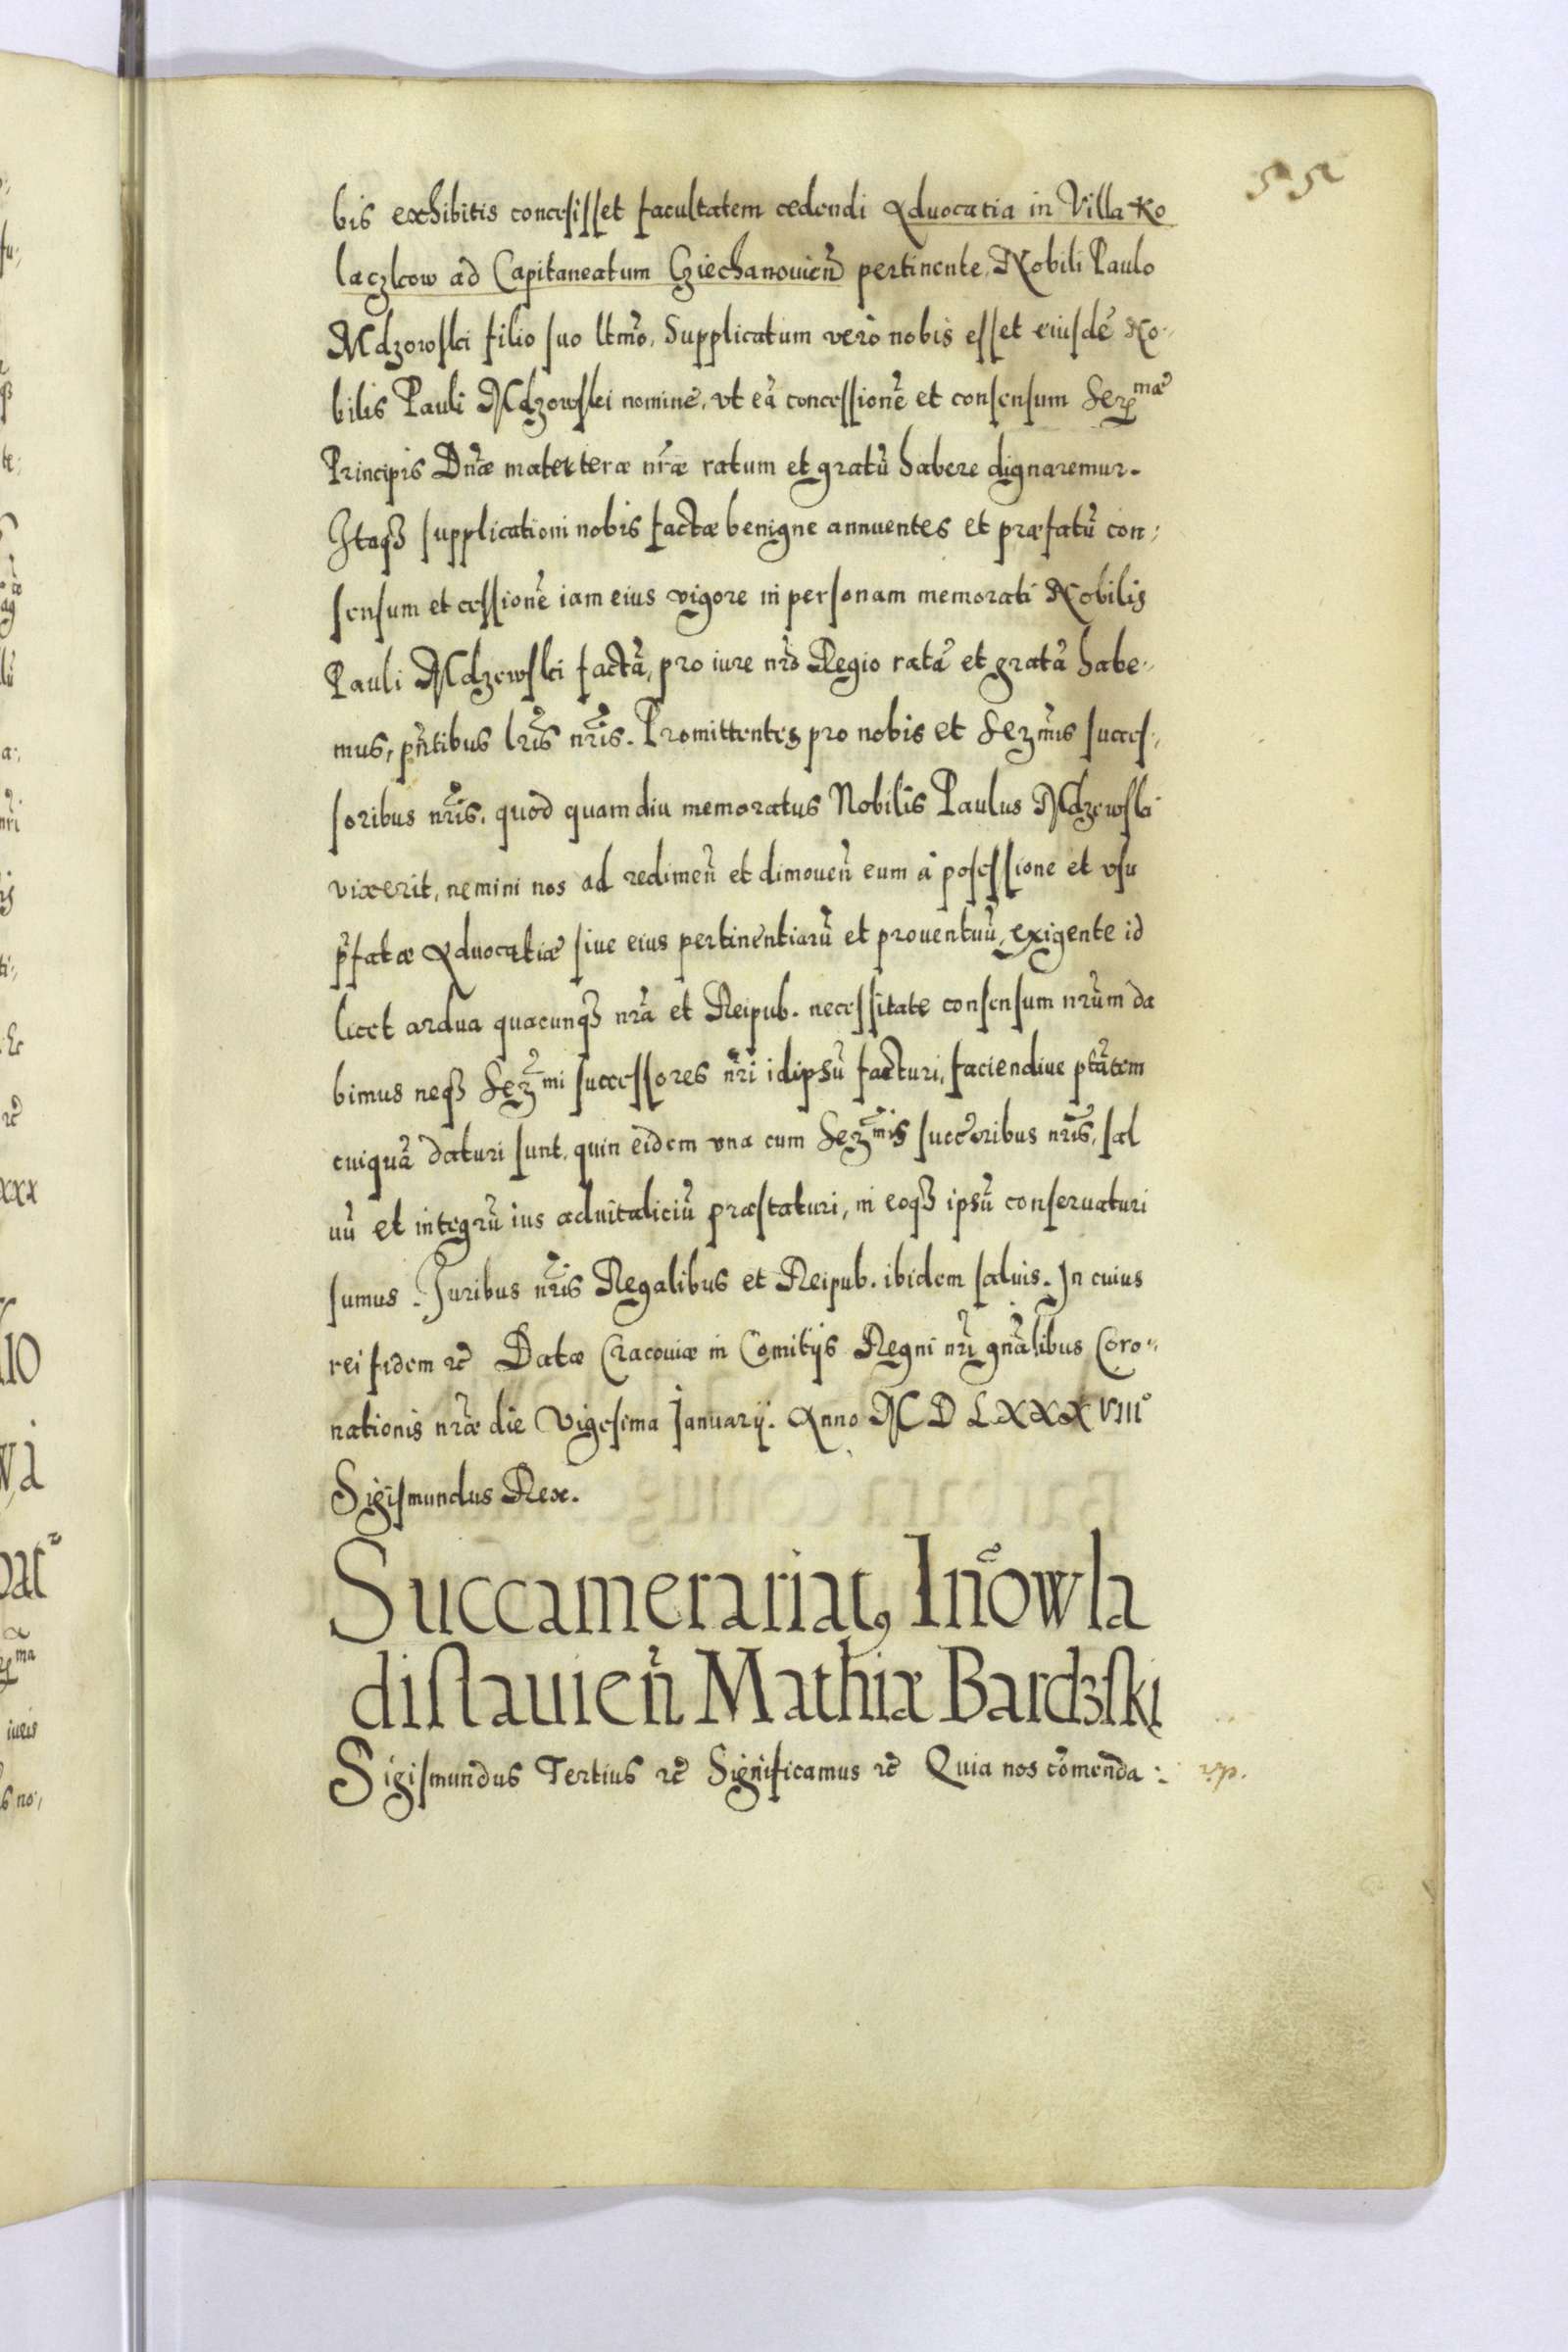 52
bis exhibitis concesisset facultatem cedendi Advocatia in Villa Ko
laczkow ad Capitaneatum Cziechanouień pertinente, Nobili Paulo
Mdzowski filio suo ltmõ, Supplicatum verò nobis esset eiusdẽ No-
bilis Pauli Mdzowski nomine, vt eã concessionẽ et consensum Serᵐᵃᵉ
Principis Dñæ materteræ nr̃æ ratum et gratũ habere dignaremur.
Itaqȝ supplicationi nobis factæ benigne annuentes et præfatũ con-
sensum et cessionẽ iam eius vigore in personam memorati Nobilis
Pauli Mdzewski factã, pro iure nr̃o Regio ratã et gratã habe-
mus, pñtibus lr̃is nr̃is. Promittentes pro nobis et Serm̃is succes-
soribus nr̃is, quod quam diu memoratus Nobilis Paulus Mdzewski
vixerit, nemini nos ad redimeñ et dimoueñ eum à posessione et vsu
p̃fatæ Aduocatiæ siue eius pertinentiarũ et prouentuũ, exigente id
licet ardua quacunqȝ nr̃a et Reipub. necessitate consensum nr̃um da
bimus neqȝ Serᵐⁱ successores nr̃i idipsũ facturi, faciendiue ptãtem
cuiquã daturi sunt, quin eidem vna cum Serᵐⁱˢ succẽoribus nr̃is, sal
uũ et integrũ ius aduitaliciũ præstaturi, in eoqȝ ipsũ conseruaturi
sumus. Juribus nr̃is Regalibus et Reipub. ibidem saluis. In cuius
rei fidem rẽ Datæ Cracouiæ in Comitijs Regni nr̃i gñalibus Coro-
nationis nr̃æ die Vigesima Januarij. Anno M D LXXXVIII°
Sigismundus Rex.
Succamerariatꝰ Inõwla
dislauień Mathiæ Bardzski
Sigismundus Tertius rẽ Significamus rẽ Quia nos cõmenda-